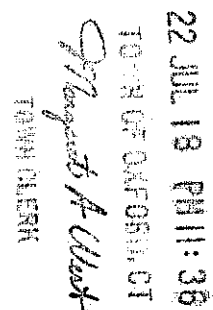 22 JUL 18 PM 11: 36
TOWN OF OXFORD, CT
Margaret A West
TOWN CLERK